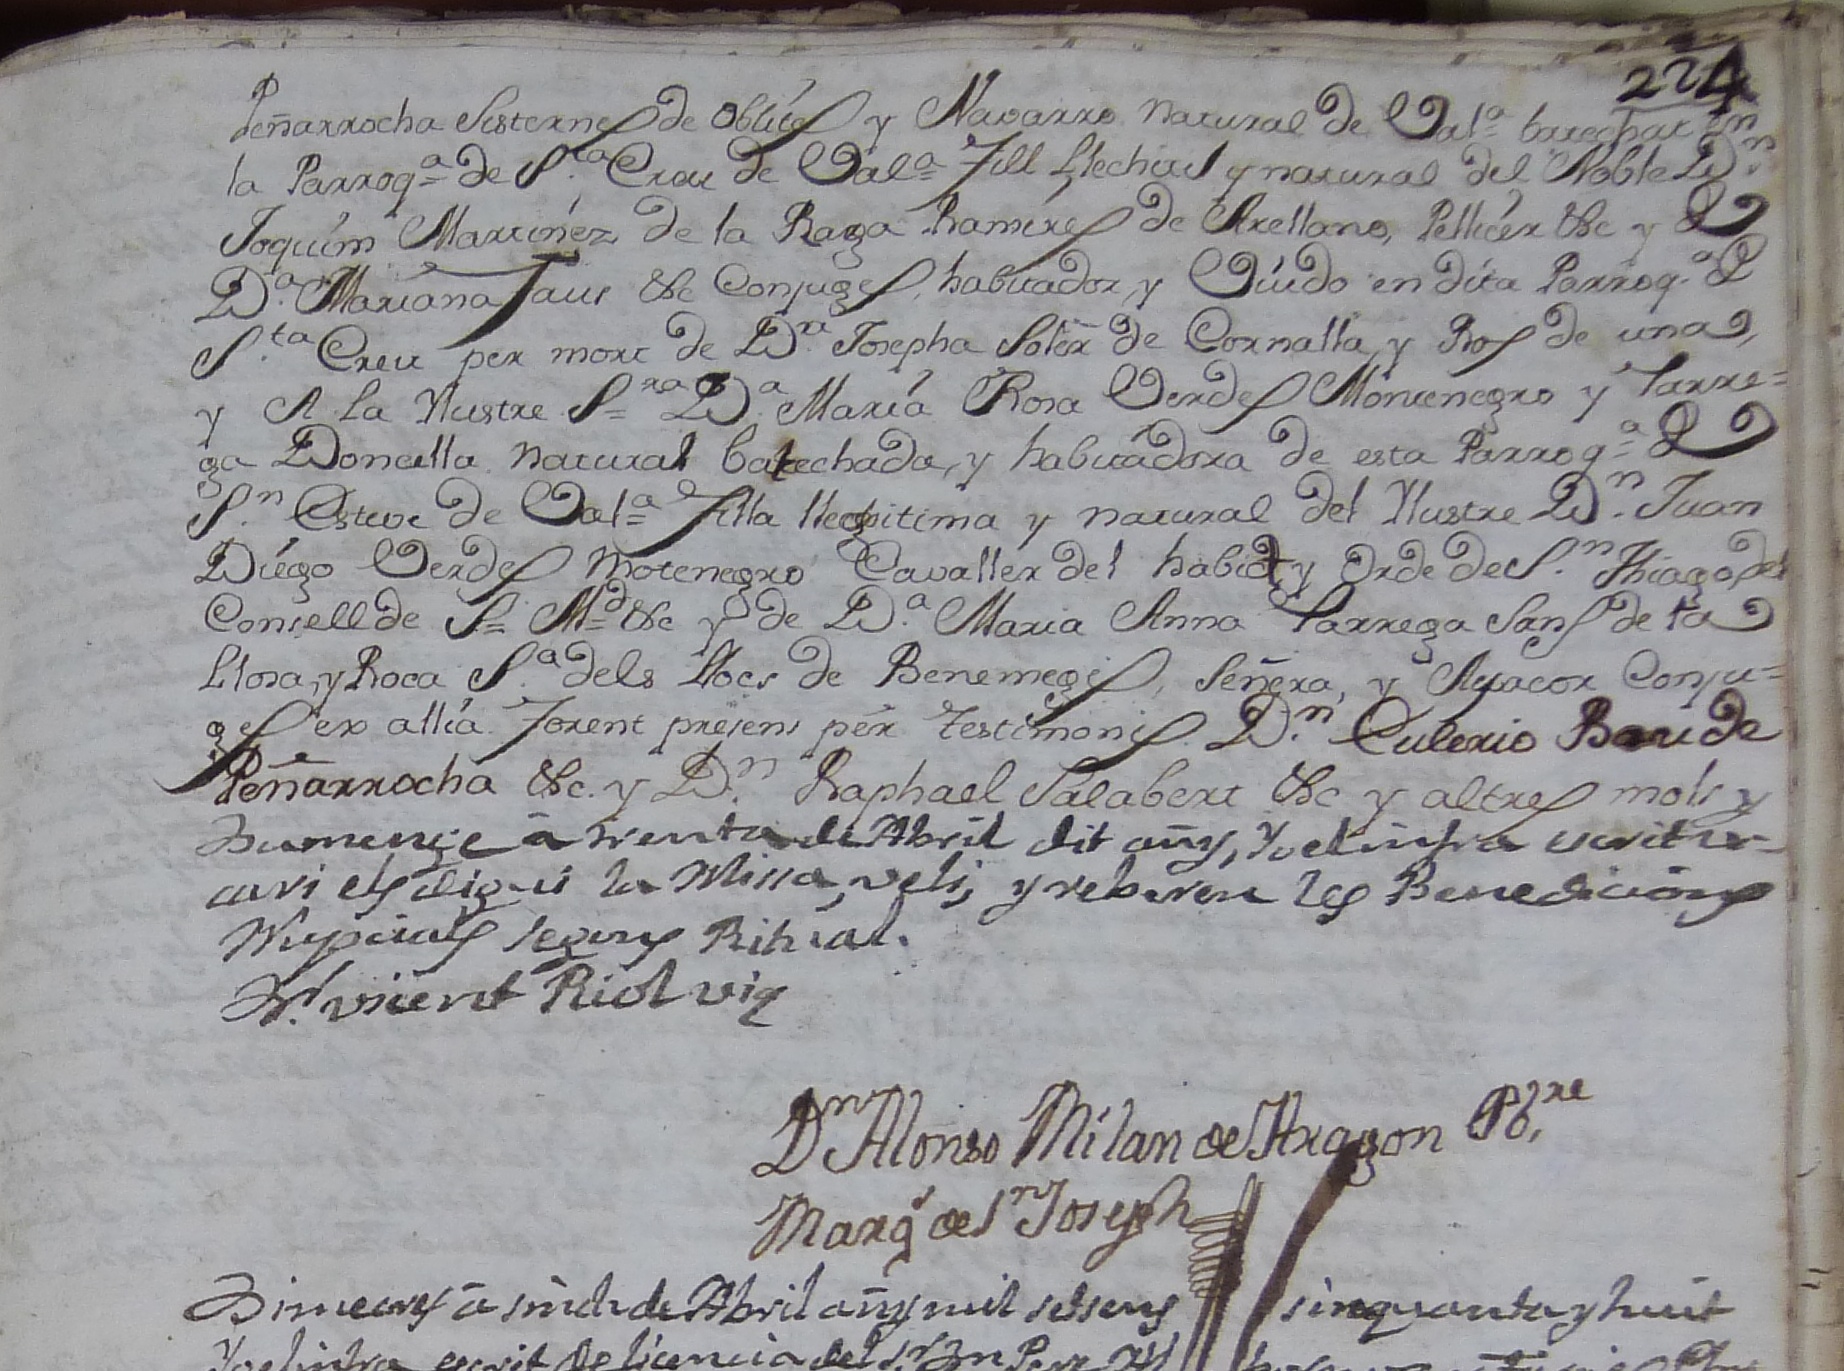 224
Peñarrocha Sisternes de Oblites y Navarro natural de Val.ª batechat En
la Parroq.ª de S.ta Creu de Val.ª Fill LlechitI y natural del Noble D.n
Joquím Martínez de la Raga Ramires de Arellano, Pellicér &c y d
D.ª Mariana Faus &c Conjuges, habitador, y Viúdo en díta Parroq.ª d
S.ta Creu per mort de D.ª Josepha Solér de Cornalla y Ros de una,
y A la Yllustre S.ra D.ª María Rosa Verdes Montenegro y Tarre=
ga Doncella natural batechada, y habitadora de esta Parroq.ª d
S.n Esteve de Val.ª Filla llegitima y natural del Yllustre D.n Juan
Diégo Verdes Motenegro Cavaller del habit, y Orde de S.n Thiago, del
Consell de S. M.d &c y de D.ª Maria Anna Tarrega Sans de la
Llosa, y Roca S.ª dels Llocs de Benemegis, Señera, y Ayacor Conju=
ges ex allia. Forent presens pér Testimonis. D.n Eulerio Bau de
Peñarrocha &c. y D.n Raphael Salabert &c y altres molts y
Dumenge á trenta de Abril dit añy, Yo el infra escrit vi-
cari els digui la Missa, vels, y reberen les Benedicions
Nupcials segons Ritual.
Dr. Vicent Riol vig
D.n Alonso Milan de Aragon Pb.re
Marq.s de S.n Joseph
Dimecres á sinch de Abril añy mil setsens sinquanta y huit
Yo el infra escrit de licencia del S.r